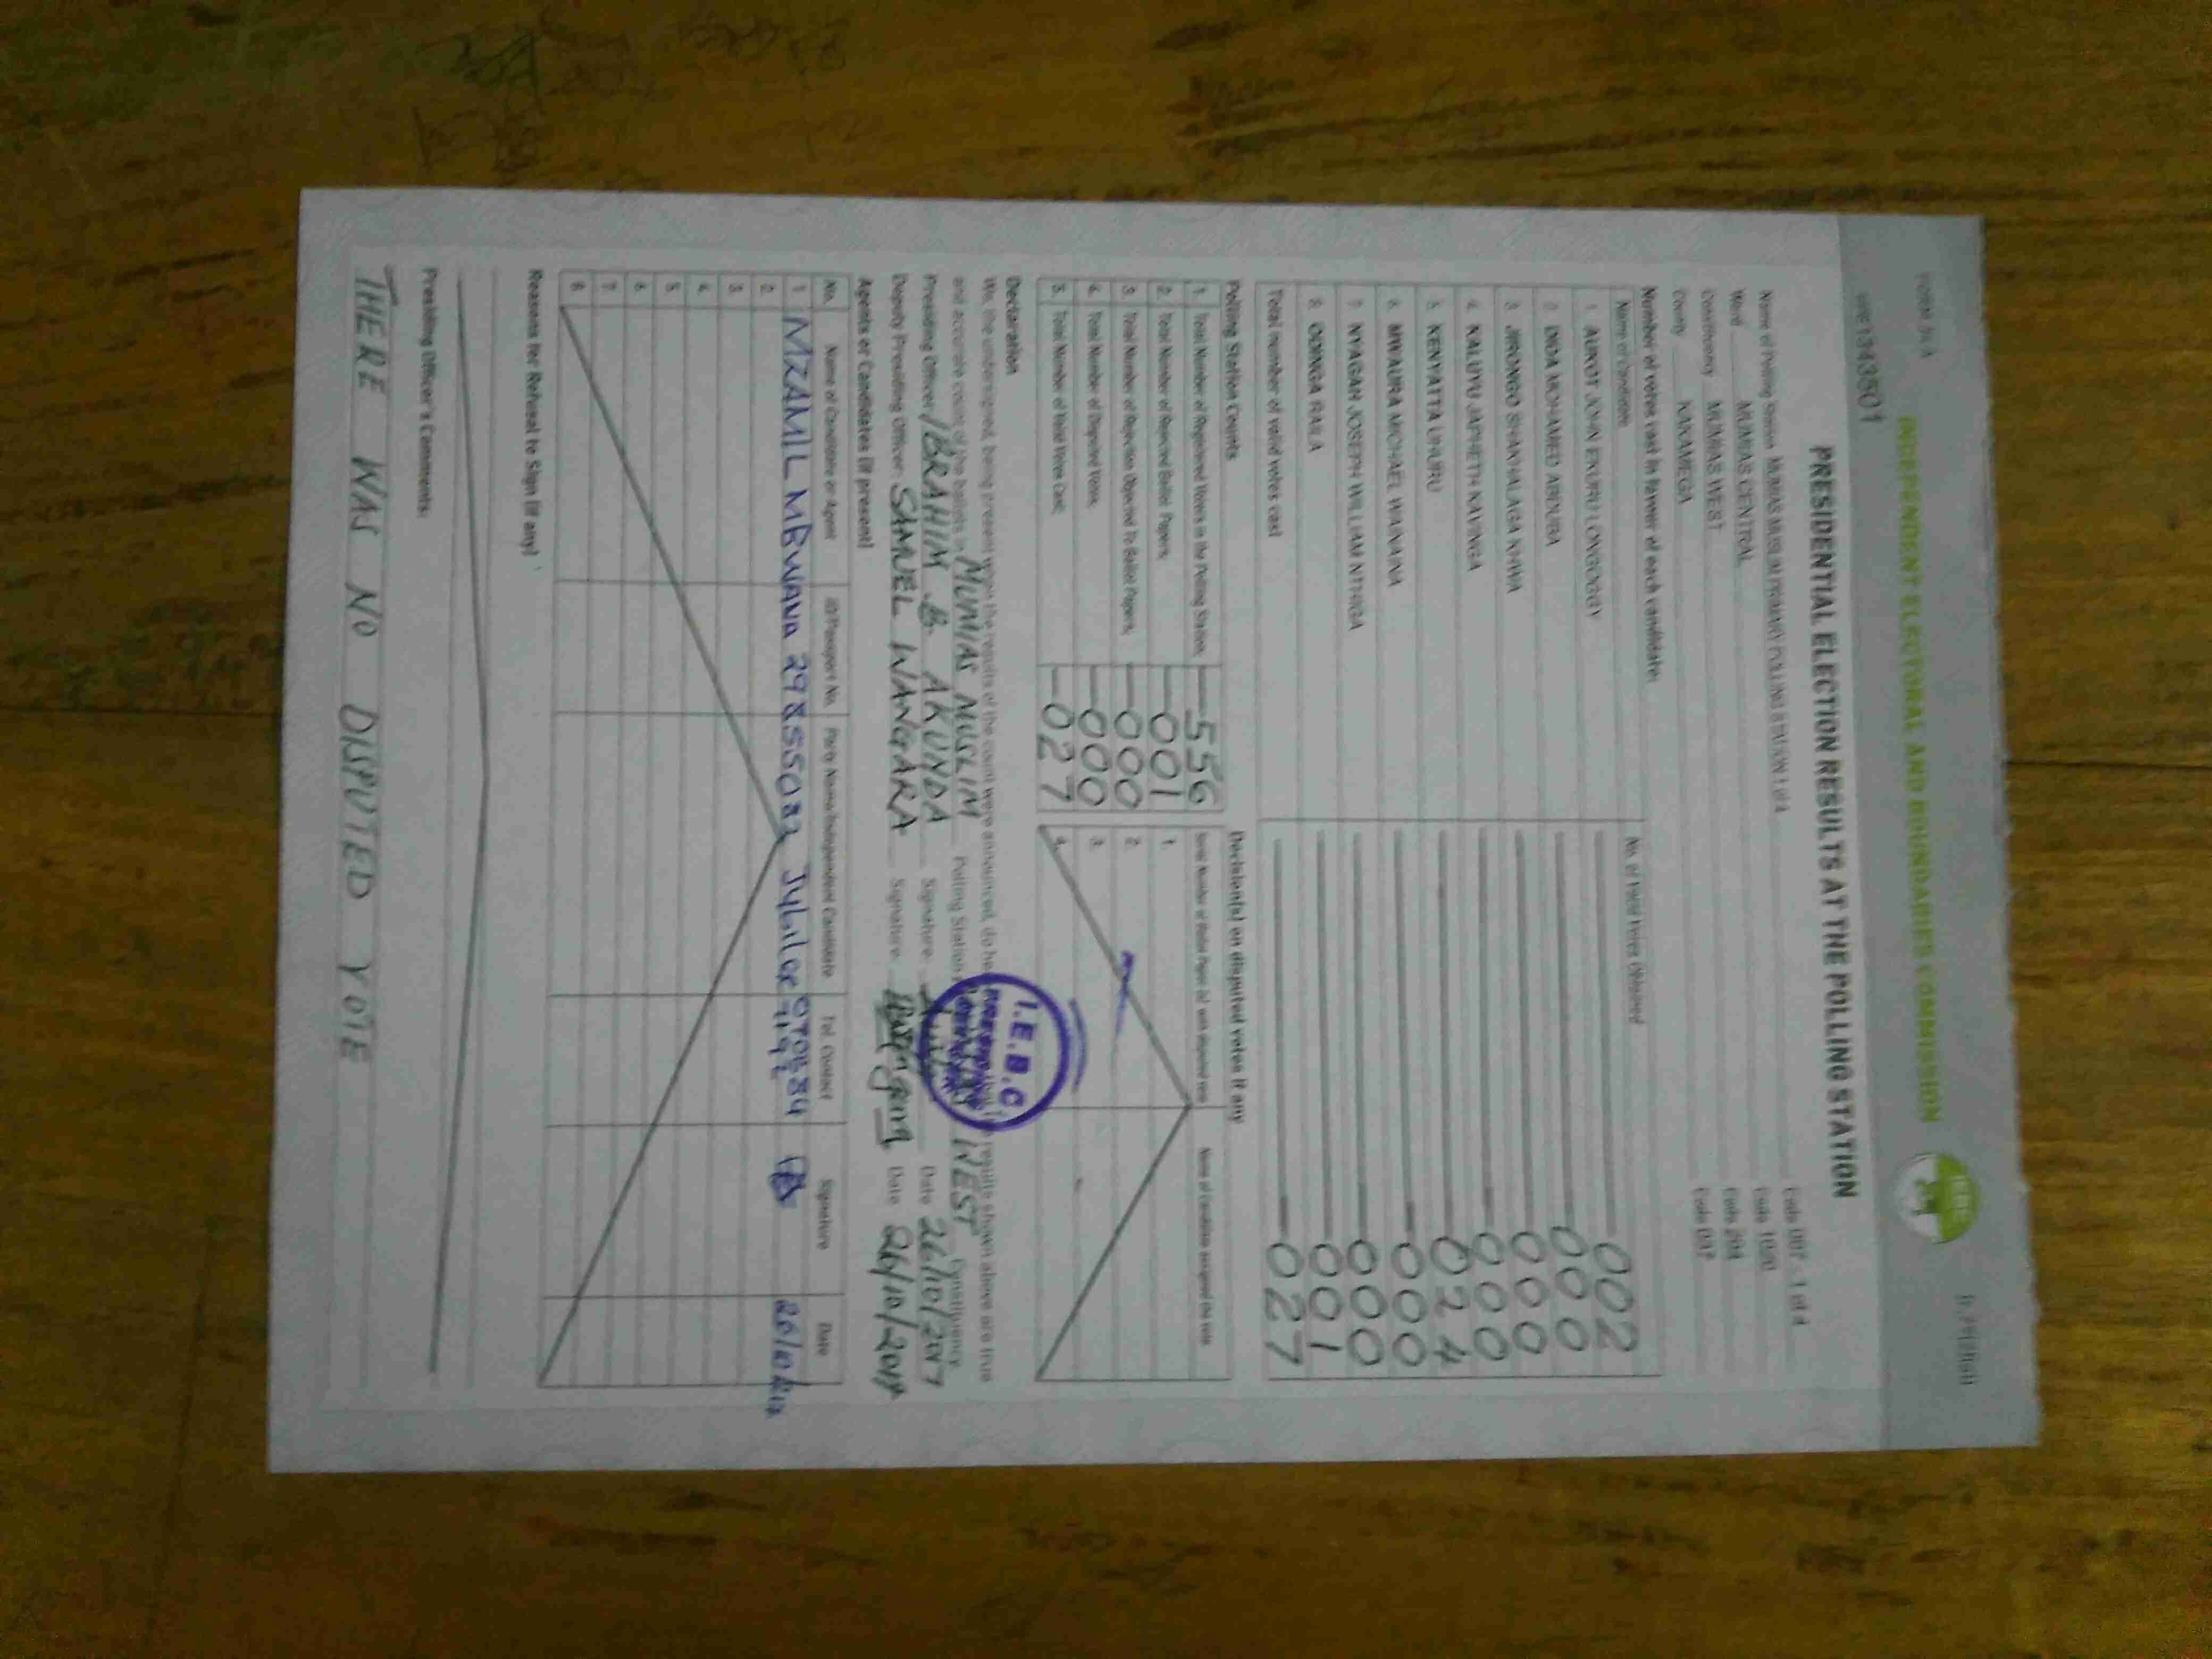 FORM 34 A
INDEPENDENT ELECTORAL AND BOUNDARIES COMMISSION
1343501
PRESIDENTIAL ELECTION RESULTS AT THE POLLING STATION
Name of Polling Station MUMIAS MUSLIM PRIMARY POLLING STATION 1 of 4 Code 007 - 1 of 4
Ward MUMIAS CENTRAL Code 1020
Constituency MUMIAS WEST Code 204
County KAKAMEGA Code 037
Number of votes cast in favour of each candidate:
Name of Candidate No. of Valid Votes Obtained
1. AUKOT JOHN EKURU LONGOGGY 002
2. DIDA MOHAMED ABDUBA 000
3. JIRONGO SHAKHALAGA KHWA 000
4. KALUYU JAPHETH KAVINGA 000
5. KENYATTA UHURU 024
6. MWAURA MICHAEL WAINAINA 000
7. NYAGAH JOSEPH WILLIAM NTHIGA 000
8. ODINGA RAILA 001
Total number of valid votes cast 027
Polling Station Counts Decision(s) on disputed votes if any
1. Total Number of Registered Voters in the Polling Station; 556 Name of Candidate assigned the vote
2. Total Number of Rejected Ballot Papers; 001 1.
3. Total Number of Rejection Objected To Ballot Papers; 000 2.
4. Total Number of Disputed Votes; 000 3.
5. Total Number of Valid Votes Cast; 027 4.
Declaration
We, the undersigned, being present when the results of the count were announced, do hereby results shown above are true
and accurate count of the ballots in MUMIAS MUSLIM Polling Station WEST Constituency
Presiding Officer IBRAHIM B. AKUNDA Signature Date 26/10/2017
Deputy Presiding Officer SAMUEL WANGARA Signature Date 26/10/2017
I.E.B.C
Agents or Candidates (if present)
No. Name of Candidate or Agent ID/Passport No. Party Name/Independent Candidate Tel. Contact Signature Date
1 MZAMIL MBWANA Jubilee
2.
3.
4.
5.
6.
7.
8.
Reasons for Refusal to Sign (if any)
Presiding Officer's Comments:
THERE WAS NO DISPUTED VOTE